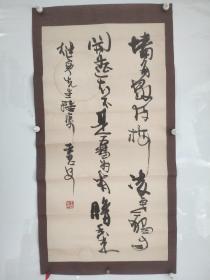 墙角数枝梅凌寒独自
開遥知不是雪为有暗香来
先生